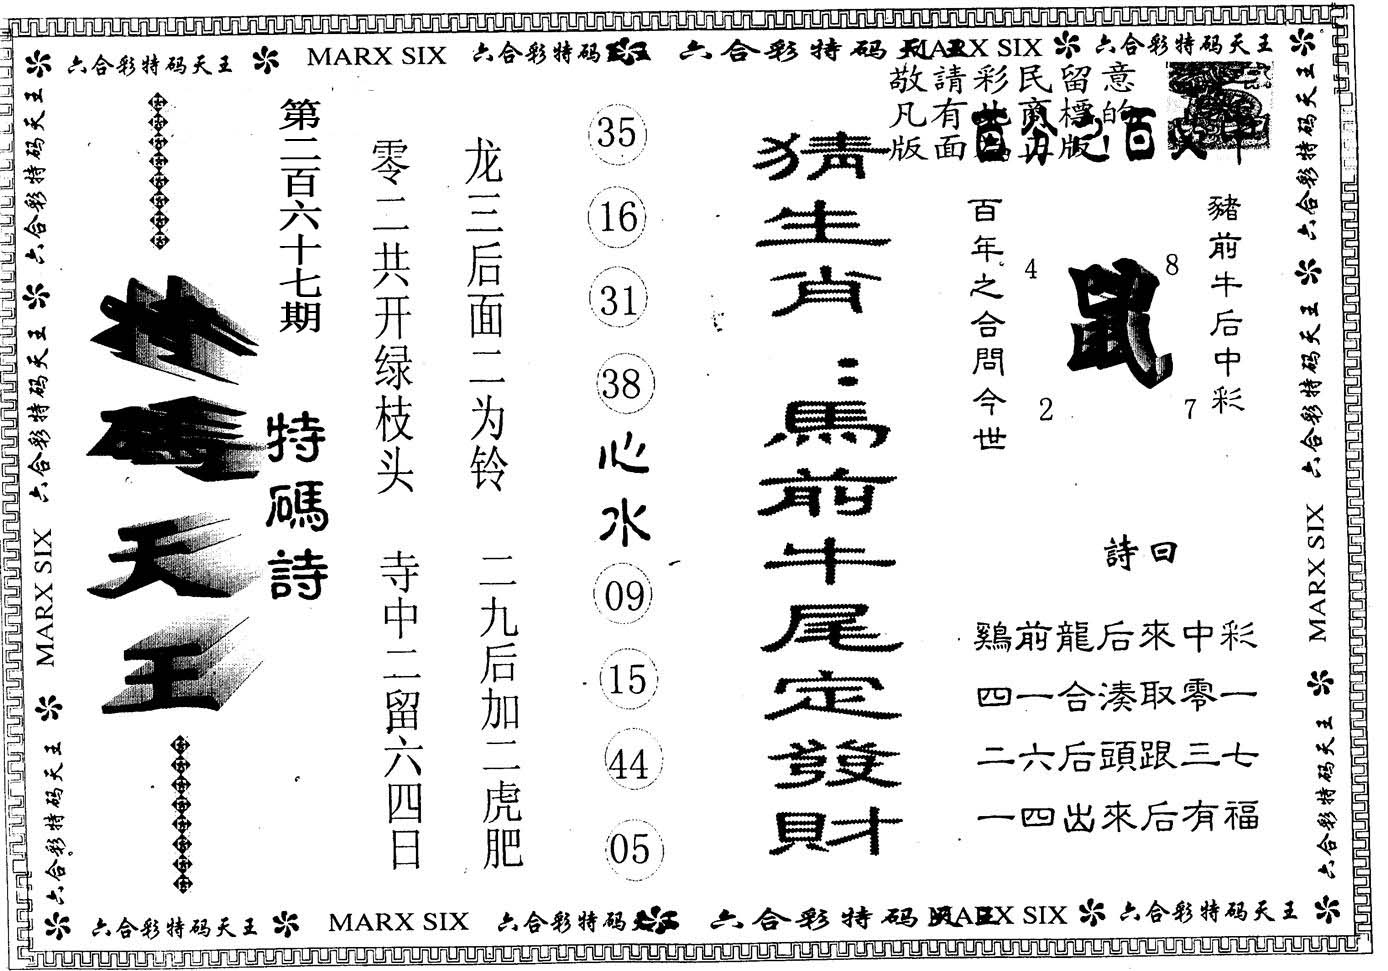 六合彩特码天王 MARX SIX 六合彩特码 六合彩特码天王 MARX SIX 六合彩特码天王
敬請彩民留意
凡有此商標的
版面為正版
百分之百
猪前牛后中彩
鼠
4
8
2
7
百年之合問今世
詩曰
鷄前龍后來中彩
四一合湊取零一
二六后頭跟三七
一四出來后有福
猜生肖：馬前牛尾定發財
35
16
31
38
心水
09
15
44
05
龙三后面二为铃 二九后加二虎肥
零二共开绿枝头 寺中二留六四日
第二百六十七期
特碼詩
特碼天王
六合彩特码天王 六合彩特码天王 MARX SIX 六合彩特码天王
六合彩特码天王 六合彩特码天王 MARX SIX 六合彩特码天王
六合彩特码天王 MARX SIX 六合彩特码 六合彩特码天王 MARX SIX 六合彩特码天王